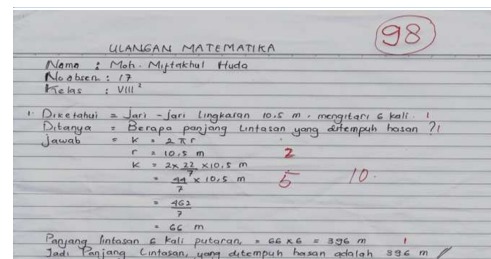 98
ULANGAN MATEMATIKA
Nama : Moh. Miftakhul Huda
No absen : 17
Kelas : VIII²
1. Diketahui = Jari - jari lingkaran 10.5 m. mengitari 6 kali. 1
Ditanya = Berapa panjang Lintasan yang ditempuh hasan ? 1
Jawab = K = 2 π r
r = 10,5 m 2
K = 2 x 22/7 x 10,5 m
= 44/7 x 10,5 m 5 10.
= 462/7
= 66 m
Panjang lintasan 6 kali putaran, = 66 x 6 = 396 m 1
Jadi Panjang Lintasan, yang ditempuh hasan adalah 396 m //